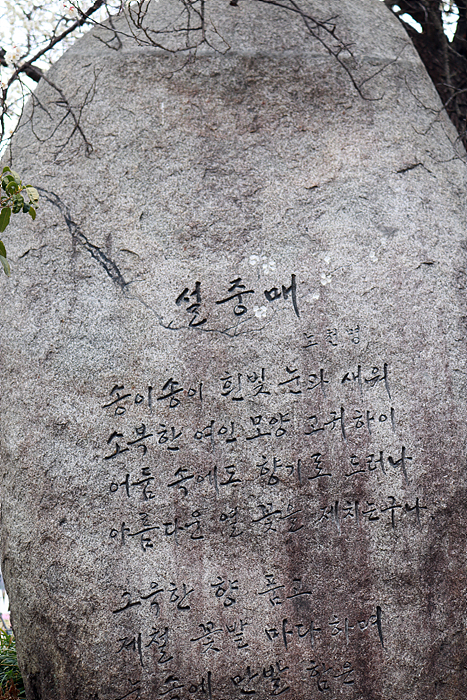 설중매
도연명
송이송이 흰빛 눈과 새워
소복한 여인 모양 고귀하이
어둠 속에도 향기로 드러나
아름다운 열 꽃을 제치는구나
그윽한 향 품고
제철 꽃밭 마다하며
눈 속에 만발 함은